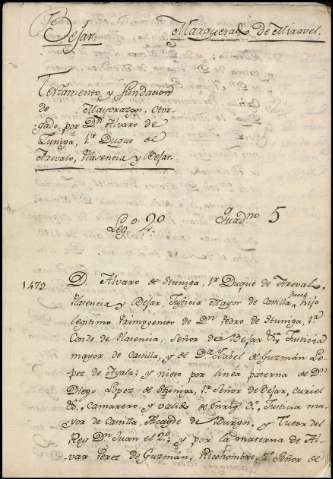 Bejar. Marquesal de Miravel.
Testamento, y fundacion
de Mayorazgo, Otor-
gado, por Dn. Alvaro de
Zuniga, 1r. Duque de
Arevalo, Plasencia y Bejar.
Leg.o 2.o quad.no 5
1472
D. Alvaro de Stuniga, 1r. Duque de Areval.
Plasencia y Bejar, Justicia Mayor de Castilla, hijo
legitimo Primogenito de Dn. Pedro de Stuniga, 1r.
Conde de Plasencia, Señor de Bejar &, Justicia
mayor de Castilla, y de Da. Isabel de Guzmán Lo-
pez de Ayala; y nieto por linea paterna de Dn.
Diego Lopez de Stuniga, 1r. Señor de Bejar, Curiel
&, Camarero, y valido de Enriq. 3o, Justicia ma-
yor de Castilla, Alcayde de Burgos, y Tutor del
Rey Dn. Juan el 2o, y por la materna de Al-
var Perez de Guzmán, Ricohombre, 1r. Señor de